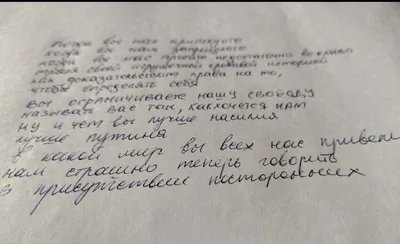 когда вы нас критикуете
когда вы нам запрещаете
когда вы нас просите недостаточно вежливо
тряся своей игрушечной кровавой историей
как доказательством права на то,
чтобы определять себя
вы ограничиваете нашу свободу
называть вас так, как хочется нам
ну и чем вы лучше насилия
лучше путина
в какой мир вы всех нас привели
нам страшно теперь говорить
в присутствии посторонних